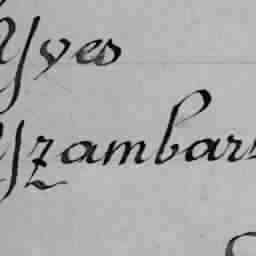 Yves
Yzambars